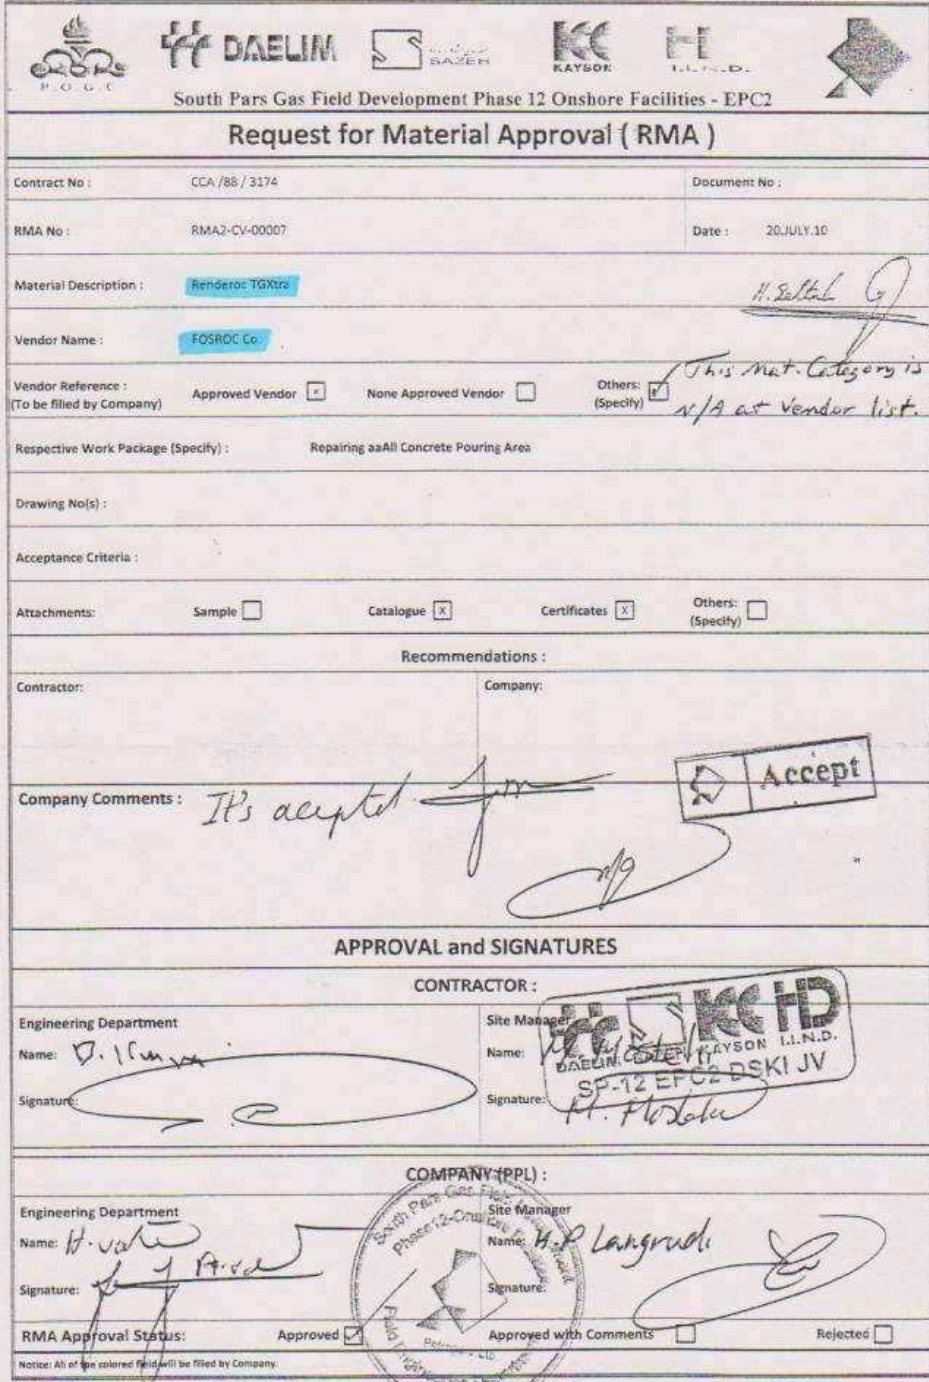 P.O.G.C
DAELIM
SAZEH
KAYSON
I.I.N.D.
South Pars Gas Field Development Phase 12 Onshore Facilities - EPC2
Request for Material Approval ( RMA )
Contract No : CCA /88 / 3174 Document No :
RMA No : RMA2-CV-00007 Date : 20.JULY.10
Material Description : Renderoc TGXtra
Vendor Name : FOSROC Co.
Vendor Reference :
(To be filed by Company)
Approved Vendor x None Approved Vendor
Others:
(Specify)
This mat. Category is
N/A at vendor list.
Respective Work Package (Specify) : Repairing aaAll Concrete Pouring Area
Drawing No(s) :
Acceptance Criteria :
Attachments: Sample Catalogue x Certificates x
Others:
(Specify)
Recommendations :
Contractor: Company:
Accept
Company Comments : It's acepted
APPROVAL and SIGNATURES
CONTRACTOR :
Engineering Department
Name:
Signature:
Site Manager
Name:
Signature:
DAELIM KAYSON I.I.N.D.
SP-12 EPC2 DSKI JV
COMPANY (PPL) :
Engineering Department
Name:
Signature:
Site Manager
Name: H.P Langrudi
Signature:
South Pars Gas Field
Phase12-Onshore
RMA Approval Status: Approved Approved with Comments Rejected
Notice: All of the colored field will be filed by Company.